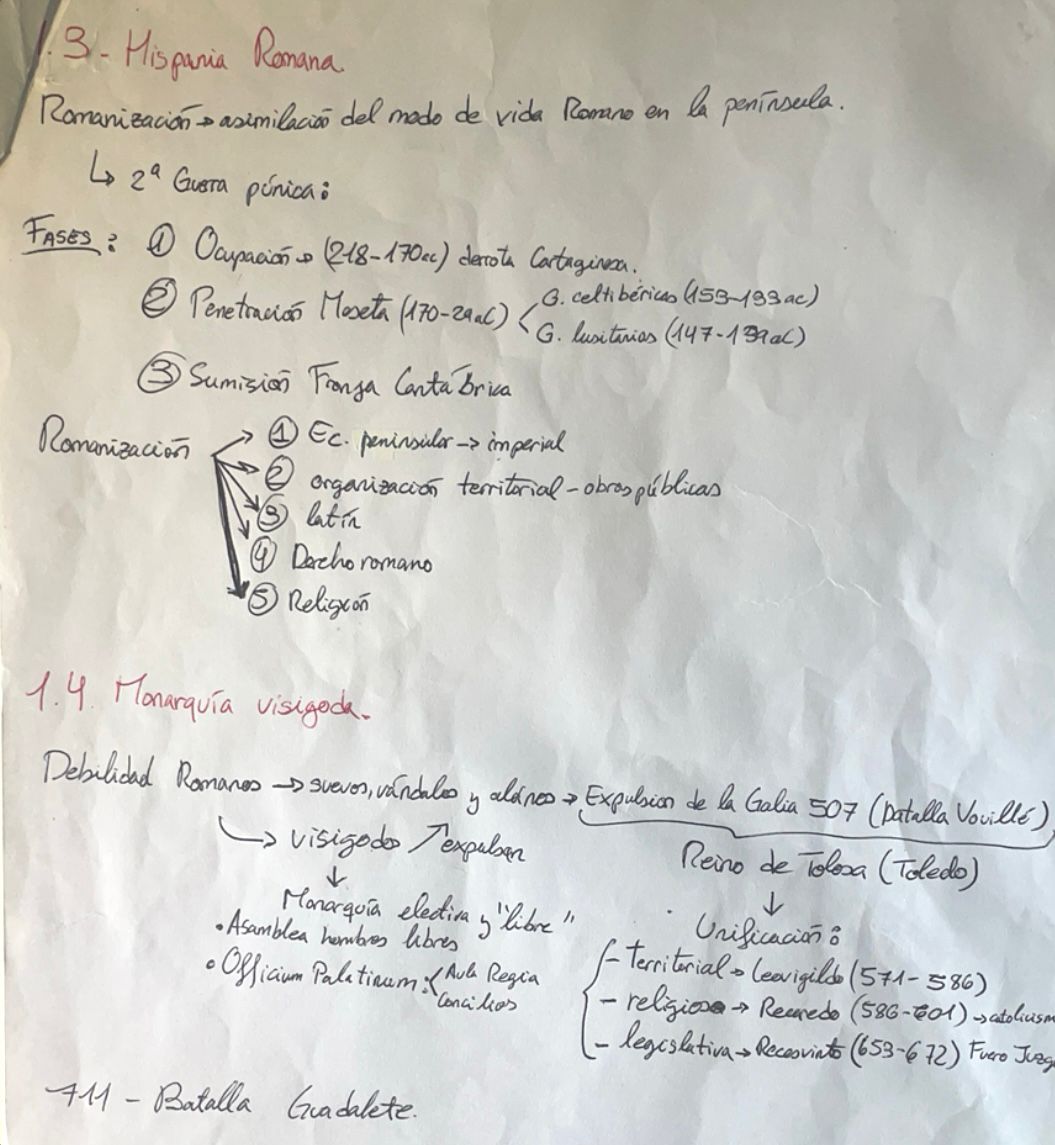 1.3 - Hispania Romana.
Romanización → asimilación del modo de vida Romano en la península.
↳ 2ª Guerra púnica:
FASES: ① Ocupación → (218-170ac) derrota Cartaginesa.
② Penetración Meseta (170-29aC) < G. celtibéricas (153-133ac)
G. lusitanias (147-139aC)
③ Sumisión Franja Cantábrica
Romanización → ① Ec. peninsular → imperial
② organización territorial - obras públicas
③ latín
④ Derecho romano
⑤ Religión
1.4. Monarquía visigoda.
Debilidad Romanos → suevos, vándalos y alanos → Expulsion de la Galia 507 (Batalla Vouillé)
↳ visigodos ↗ expulsan
Reino de Tolosa (Toledo)
↓
Monarquía electiva y "libre"
• Asamblea hombres libres
• Officium Palatinum: < Aula Regia
Concilios
↓
Unificación:
- Territorial → Leovigildo (571-586)
- religiosa → Recaredo (586-601) → catolicism
- legislativa → Recesvinto (653-672) Fuero Juzg
711 - Batalla Guadalete.